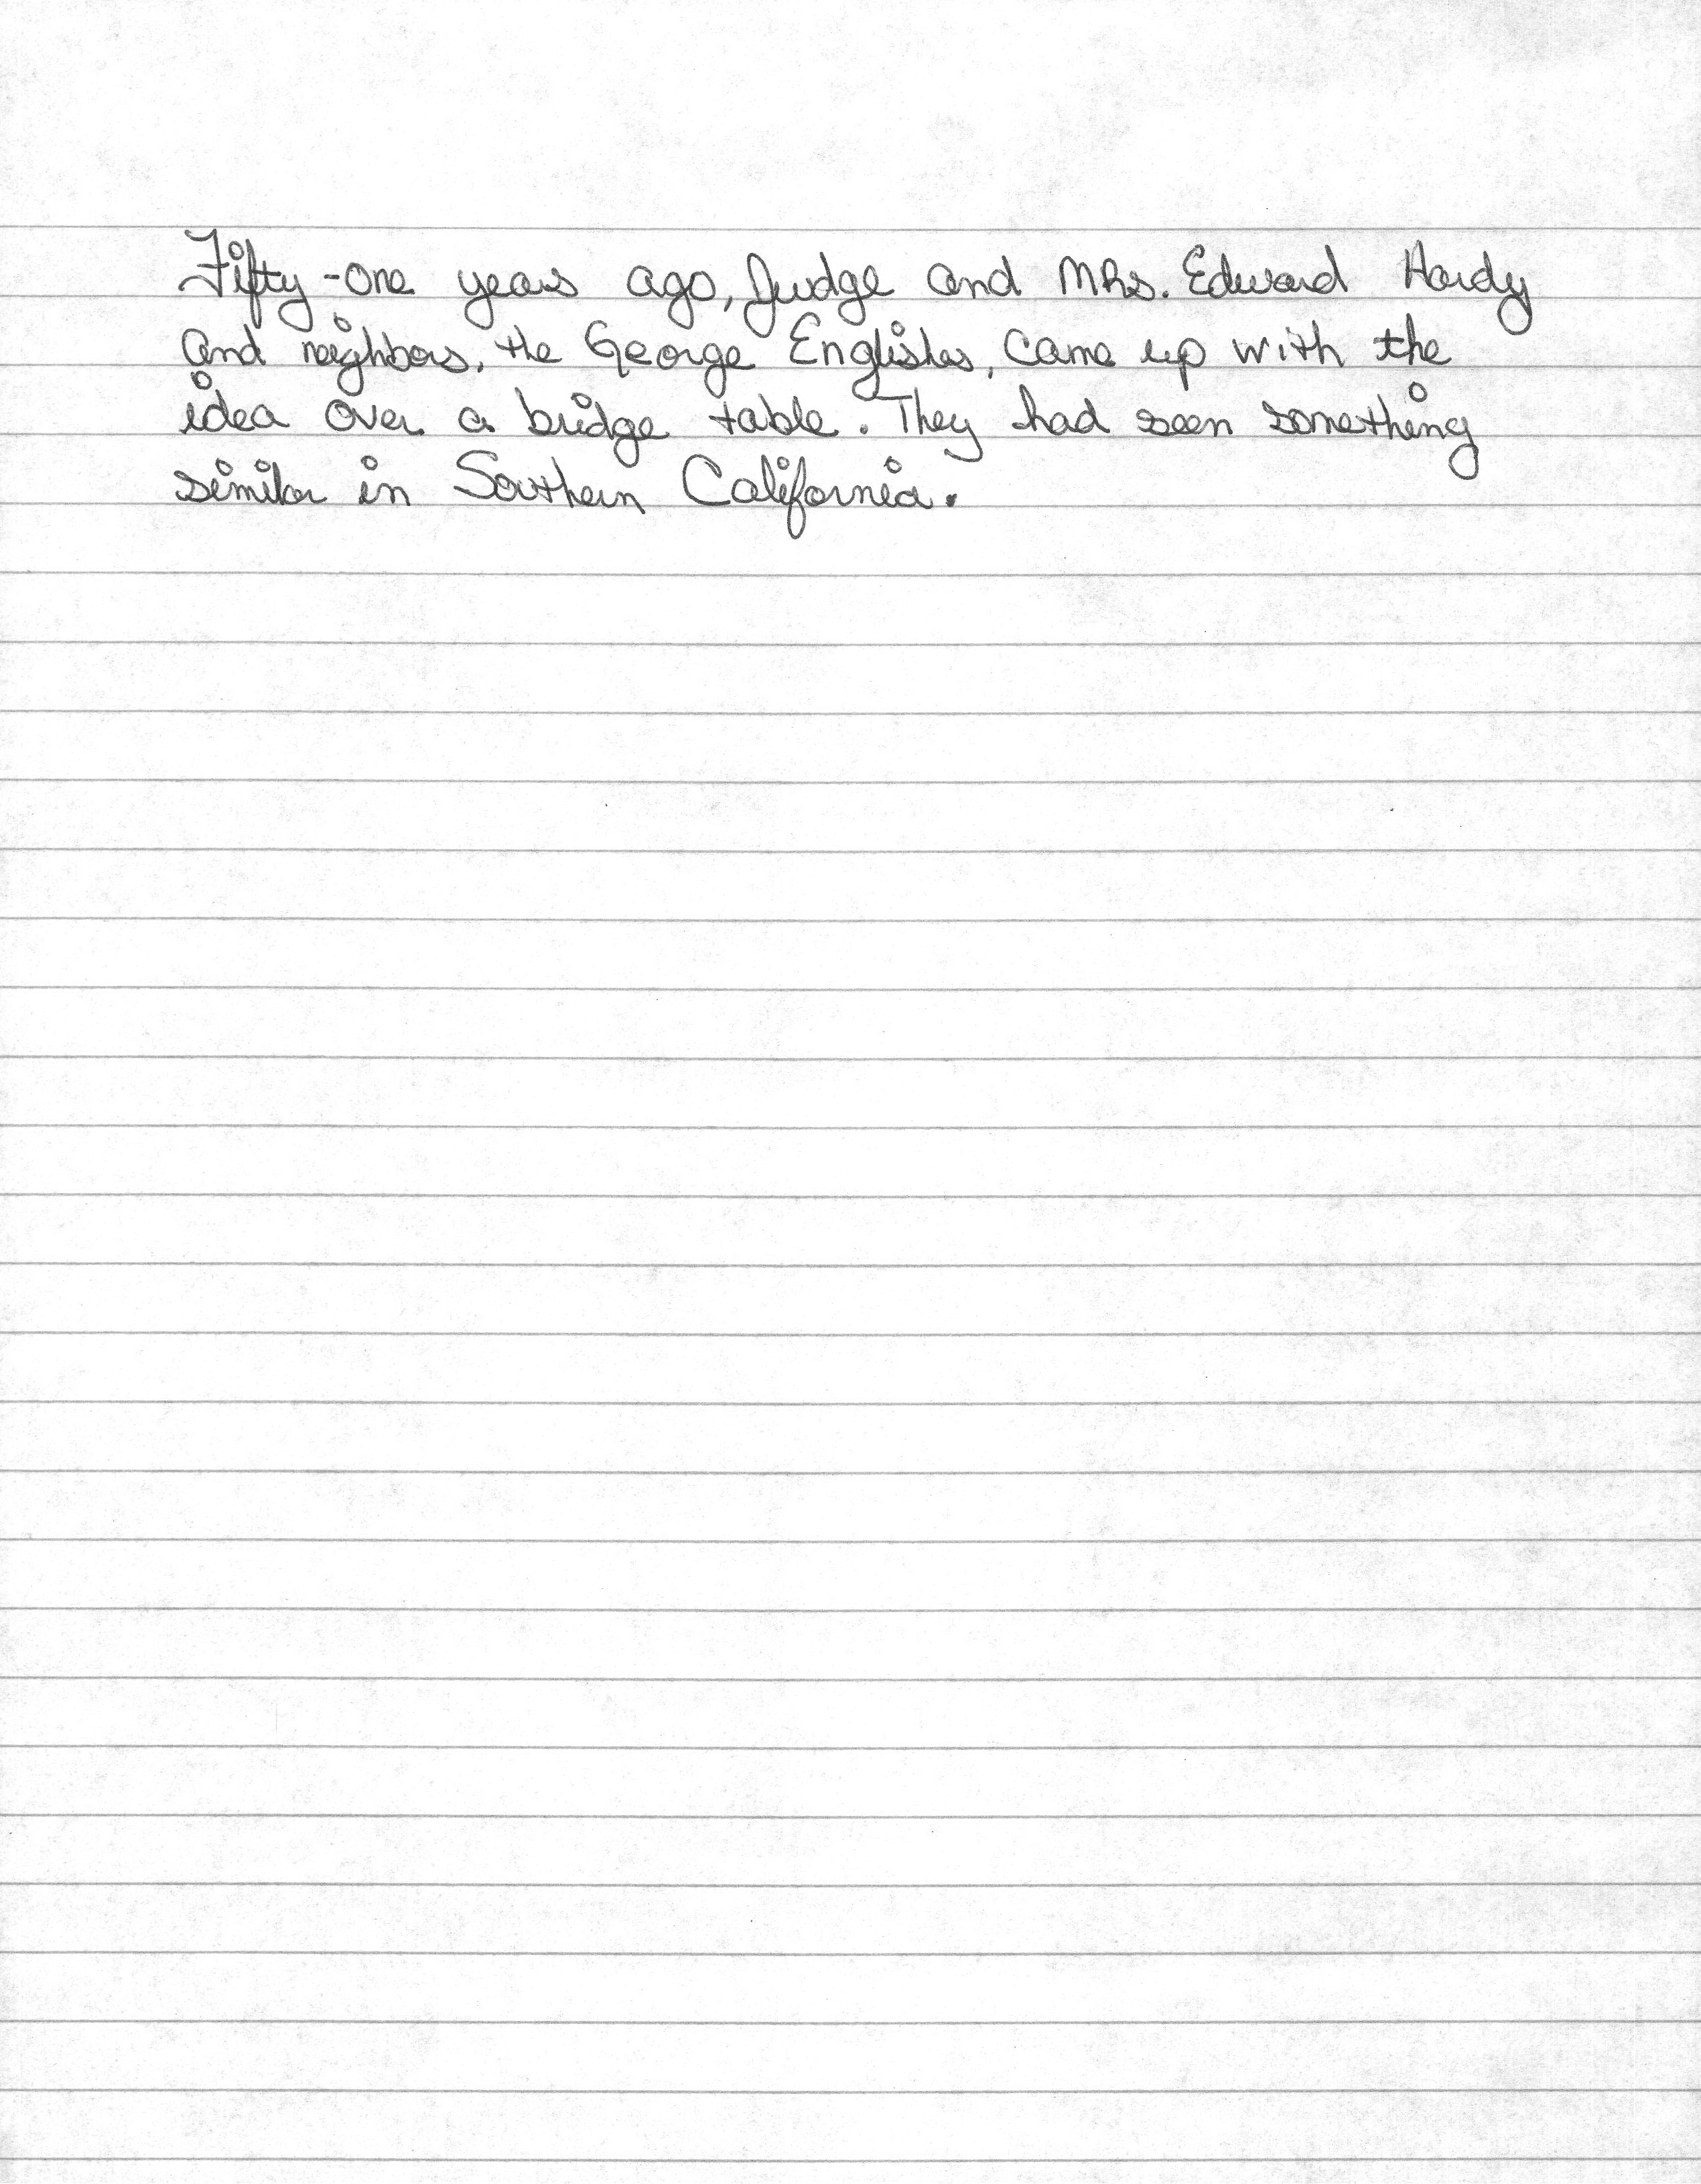 Fifty-one years ago, Judge and MRs. Edward Hardy
and neighbors, the George Englishes, came up with the
idea over a bridge table. They had seen something
similar in Southern California.